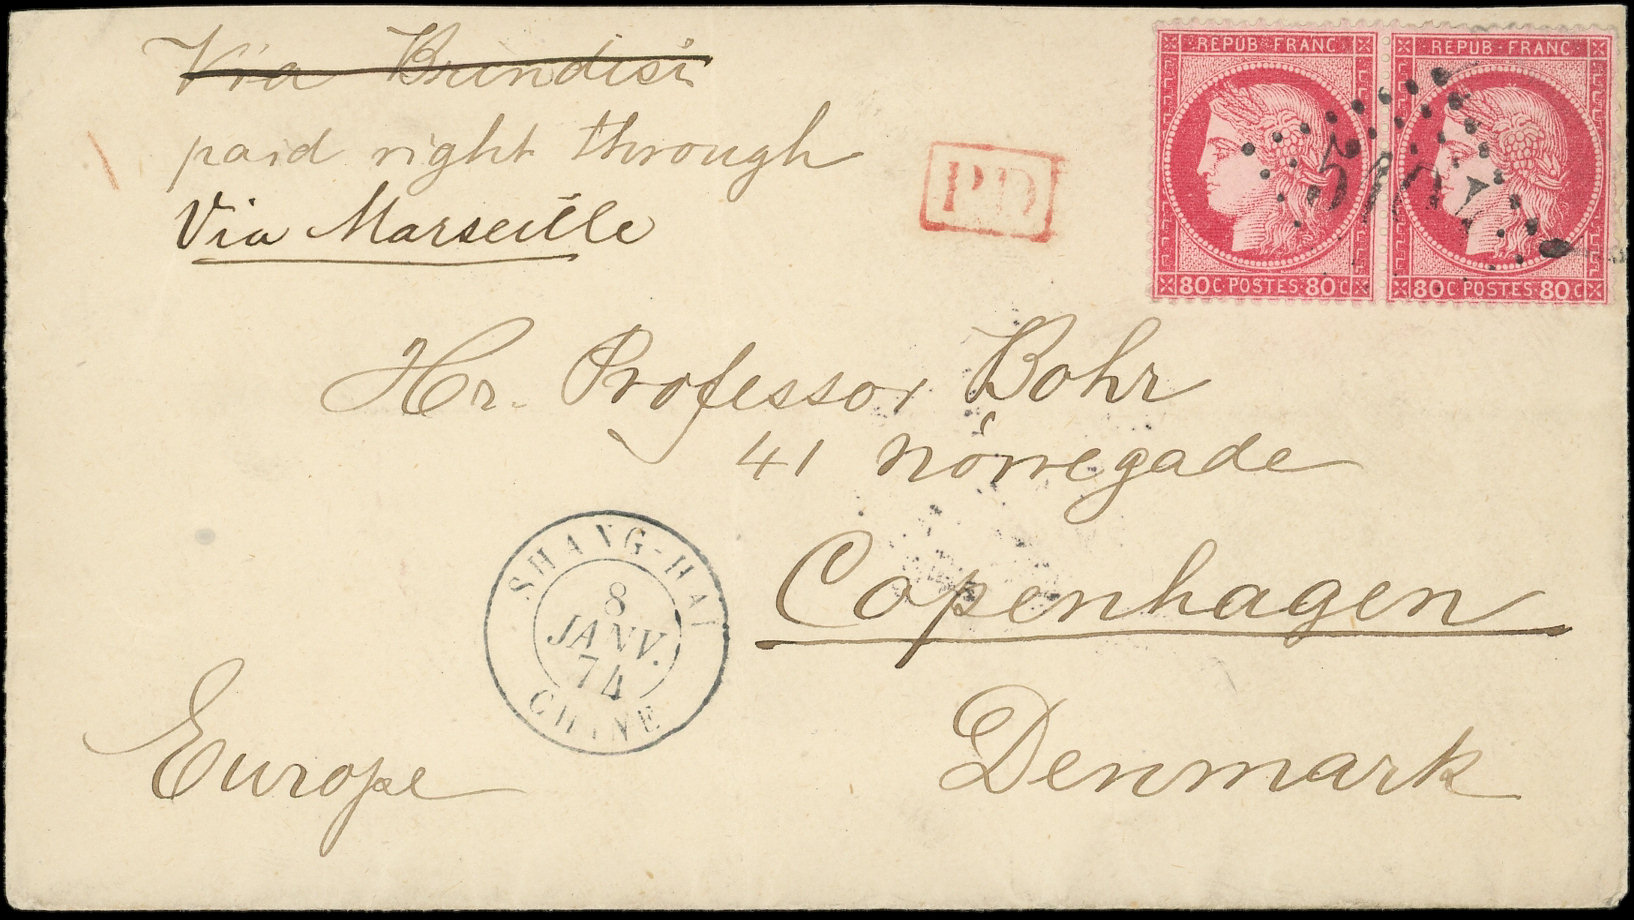 Via Brindisi
paid right through
Via Marseille
PD
REPUB FRANC
80C POSTES 80C
REPUB FRANC
80C POSTES 80C
5104
Hr. Professor Bohr
41 Nörregade
Copenhagen
Denmark
Europe
SHANG-HAI
8
JANV.
74
CHINE